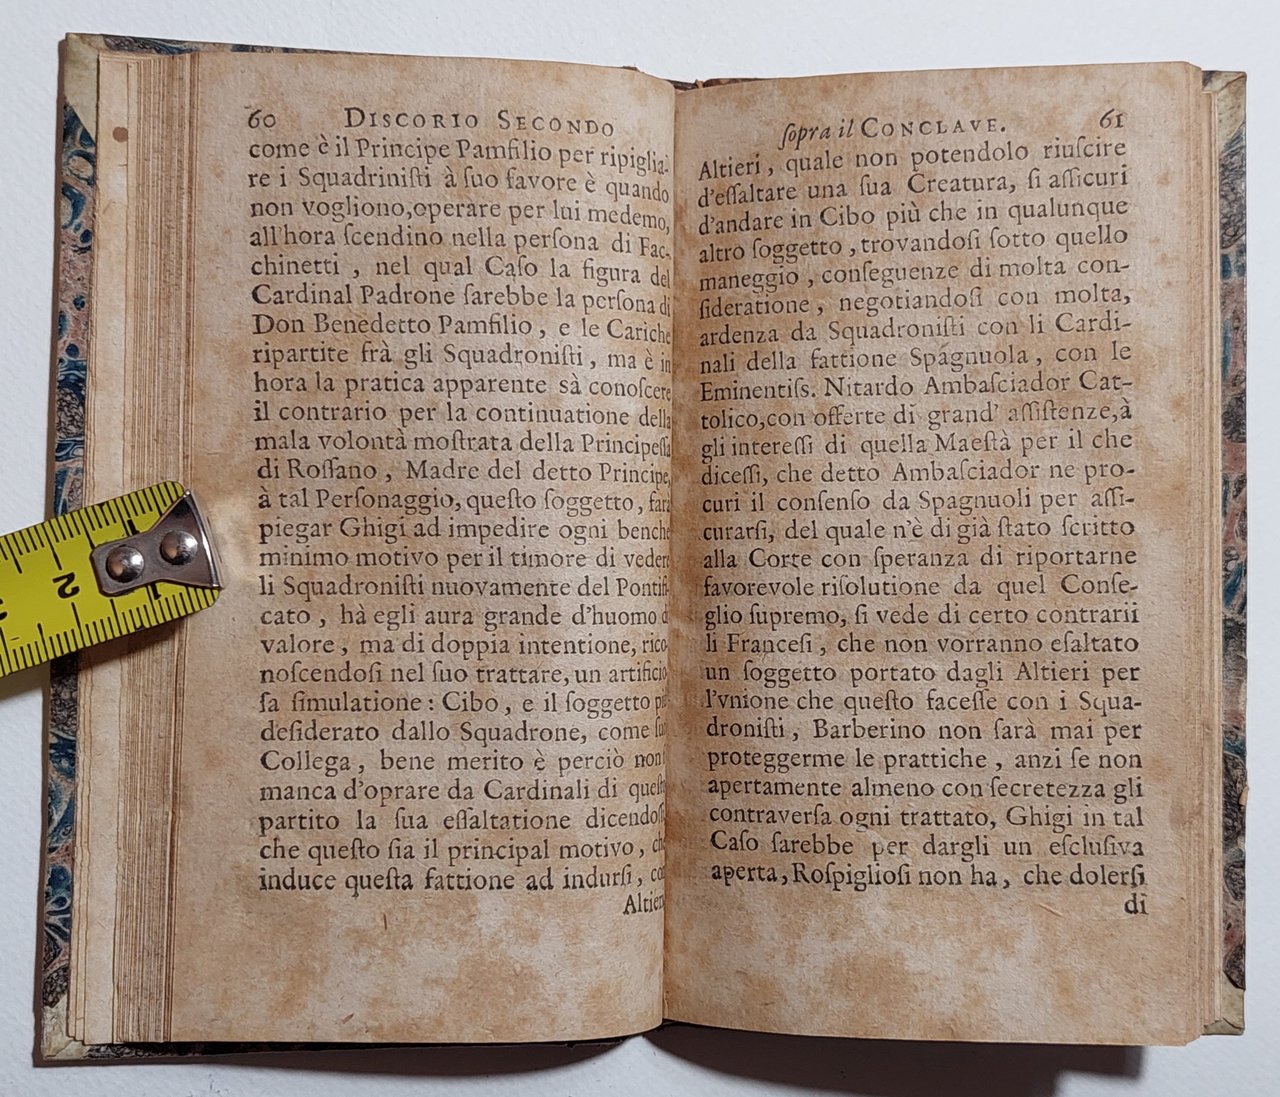 60 DISCORIO SECONDO
come è il Principe Pamfilio per ripiglia-
re i Squadriniſti à ſuo favore è quando
non vogliono,operare per lui medemo,
all'hora ſcendino nella perſona di Fac-
chinetti , nel qual Caſo la figura del
Cardinal Padrone ſarebbe la perſona di
Don Benedetto Pamfilio , e le Cariche
ripartite frà gli Squadroniſti , ma è in
hora la pratica apparente sà conoſcere
il contrario per la continuatione della
mala volontà moſtrata della Principeſſa
di Roſſano , Madre del detto Principe,
à tal Perſonaggio, queſto ſoggetto, farà
piegar Ghigi ad impedire ogni benche
minimo motivo per il timore di veder
li Squadroniſti nuovamente del Pontifi-
cato , hà egli aura grande d'huomo di
valore , ma di doppia intentione, rico-
noſcendoſi nel ſuo trattare, un artificio-
ſa ſimulatione : Cibo , e il ſoggetto più
deſiderato dallo Squadrone, come ſuo
Collega, bene merito è perciò non
manca d'oprare da Cardinali di queſto
partito la ſua eſſaltatione dicendoſi
che queſto ſia il principal motivo , che
induce queſta fattione ad indurſi, con
Altieri
ſopra il CONCLAVE. 61
Altieri , quale non potendolo riuſcire
d'eſſaltare una ſua Creatura, ſi aſſicuri
d'andare in Cibo più che in qualunque
altro ſoggetto , trovandoſi ſotto quello
maneggio , conſeguenze di molta con-
ſideratione , negotiandoſi con molta,
ardenza da Squadroniſti con li Cardi-
nali della fattione Spagnuola , con le
Eminentiſs. Nitardo Ambaſciador Cat-
tolico,con offerte di grand' aſſiſtenze,à
gli intereſſi di quella Maeſtà per il che
diceſſi, che detto Ambaſciador ne pro-
curi il conſenſo da Spagnuoli per aſſi-
curarſi, del quale n'è di già ſtato ſcritto
alla Corte con ſperanza di riportarne
favorevole riſolutione da quel Conſe-
glio ſupremo, ſi vede di certo contrarii
li Franceſi , che non vorranno eſaltato
un ſoggetto portato dagli Altieri per
l'vnione che queſto faceſſe con i Squa-
droniſti , Barberino non ſarà mai per
proteggerme le prattiche , anzi ſe non
apertamente almeno con ſecretezza gli
contraverſa ogni trattato, Ghigi in tal
Caſo ſarebbe per dargli un eſcluſiva
aperta, Roſpiglioſi non ha , che dolerſi
di
1
2
3